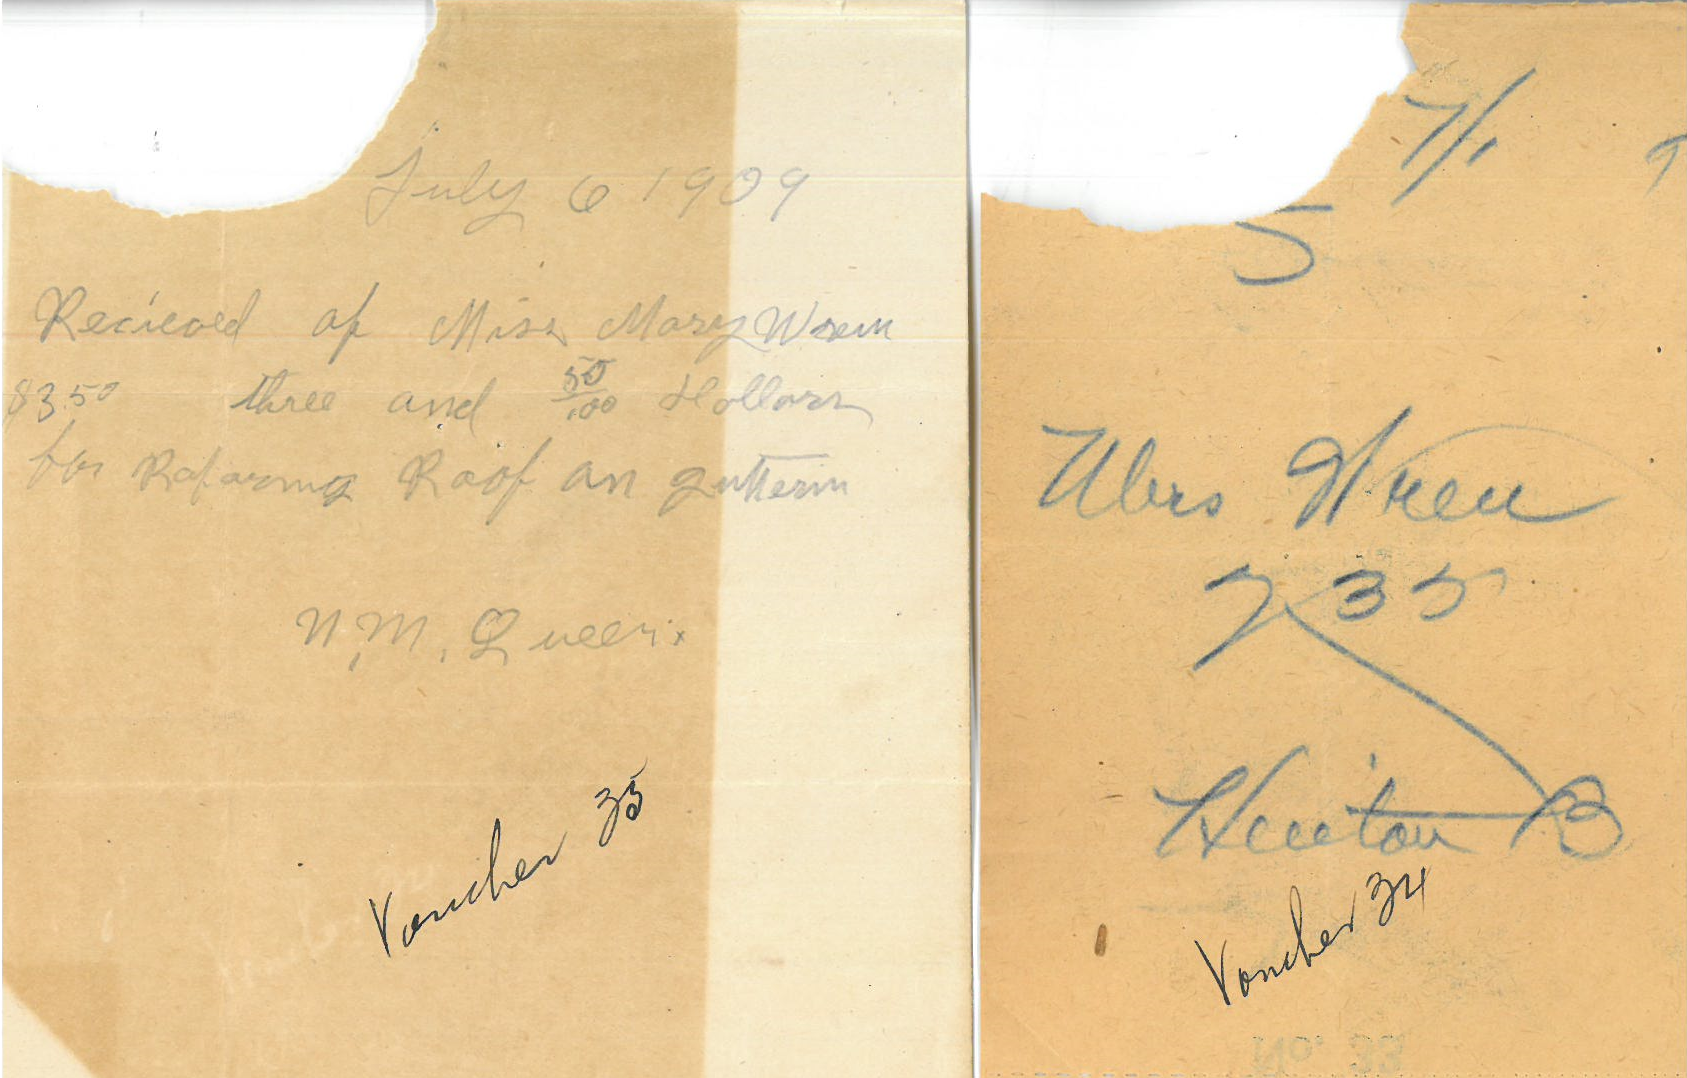 July 6 1909
Recieved of Miss Mary Wren
$3.50 three and 50/100 Dollars
for Reparing Roof an gutterin
N.M. Queen
Voucher 35
7/1
5
Mrs Wren
735
Voucher 34
No. 33